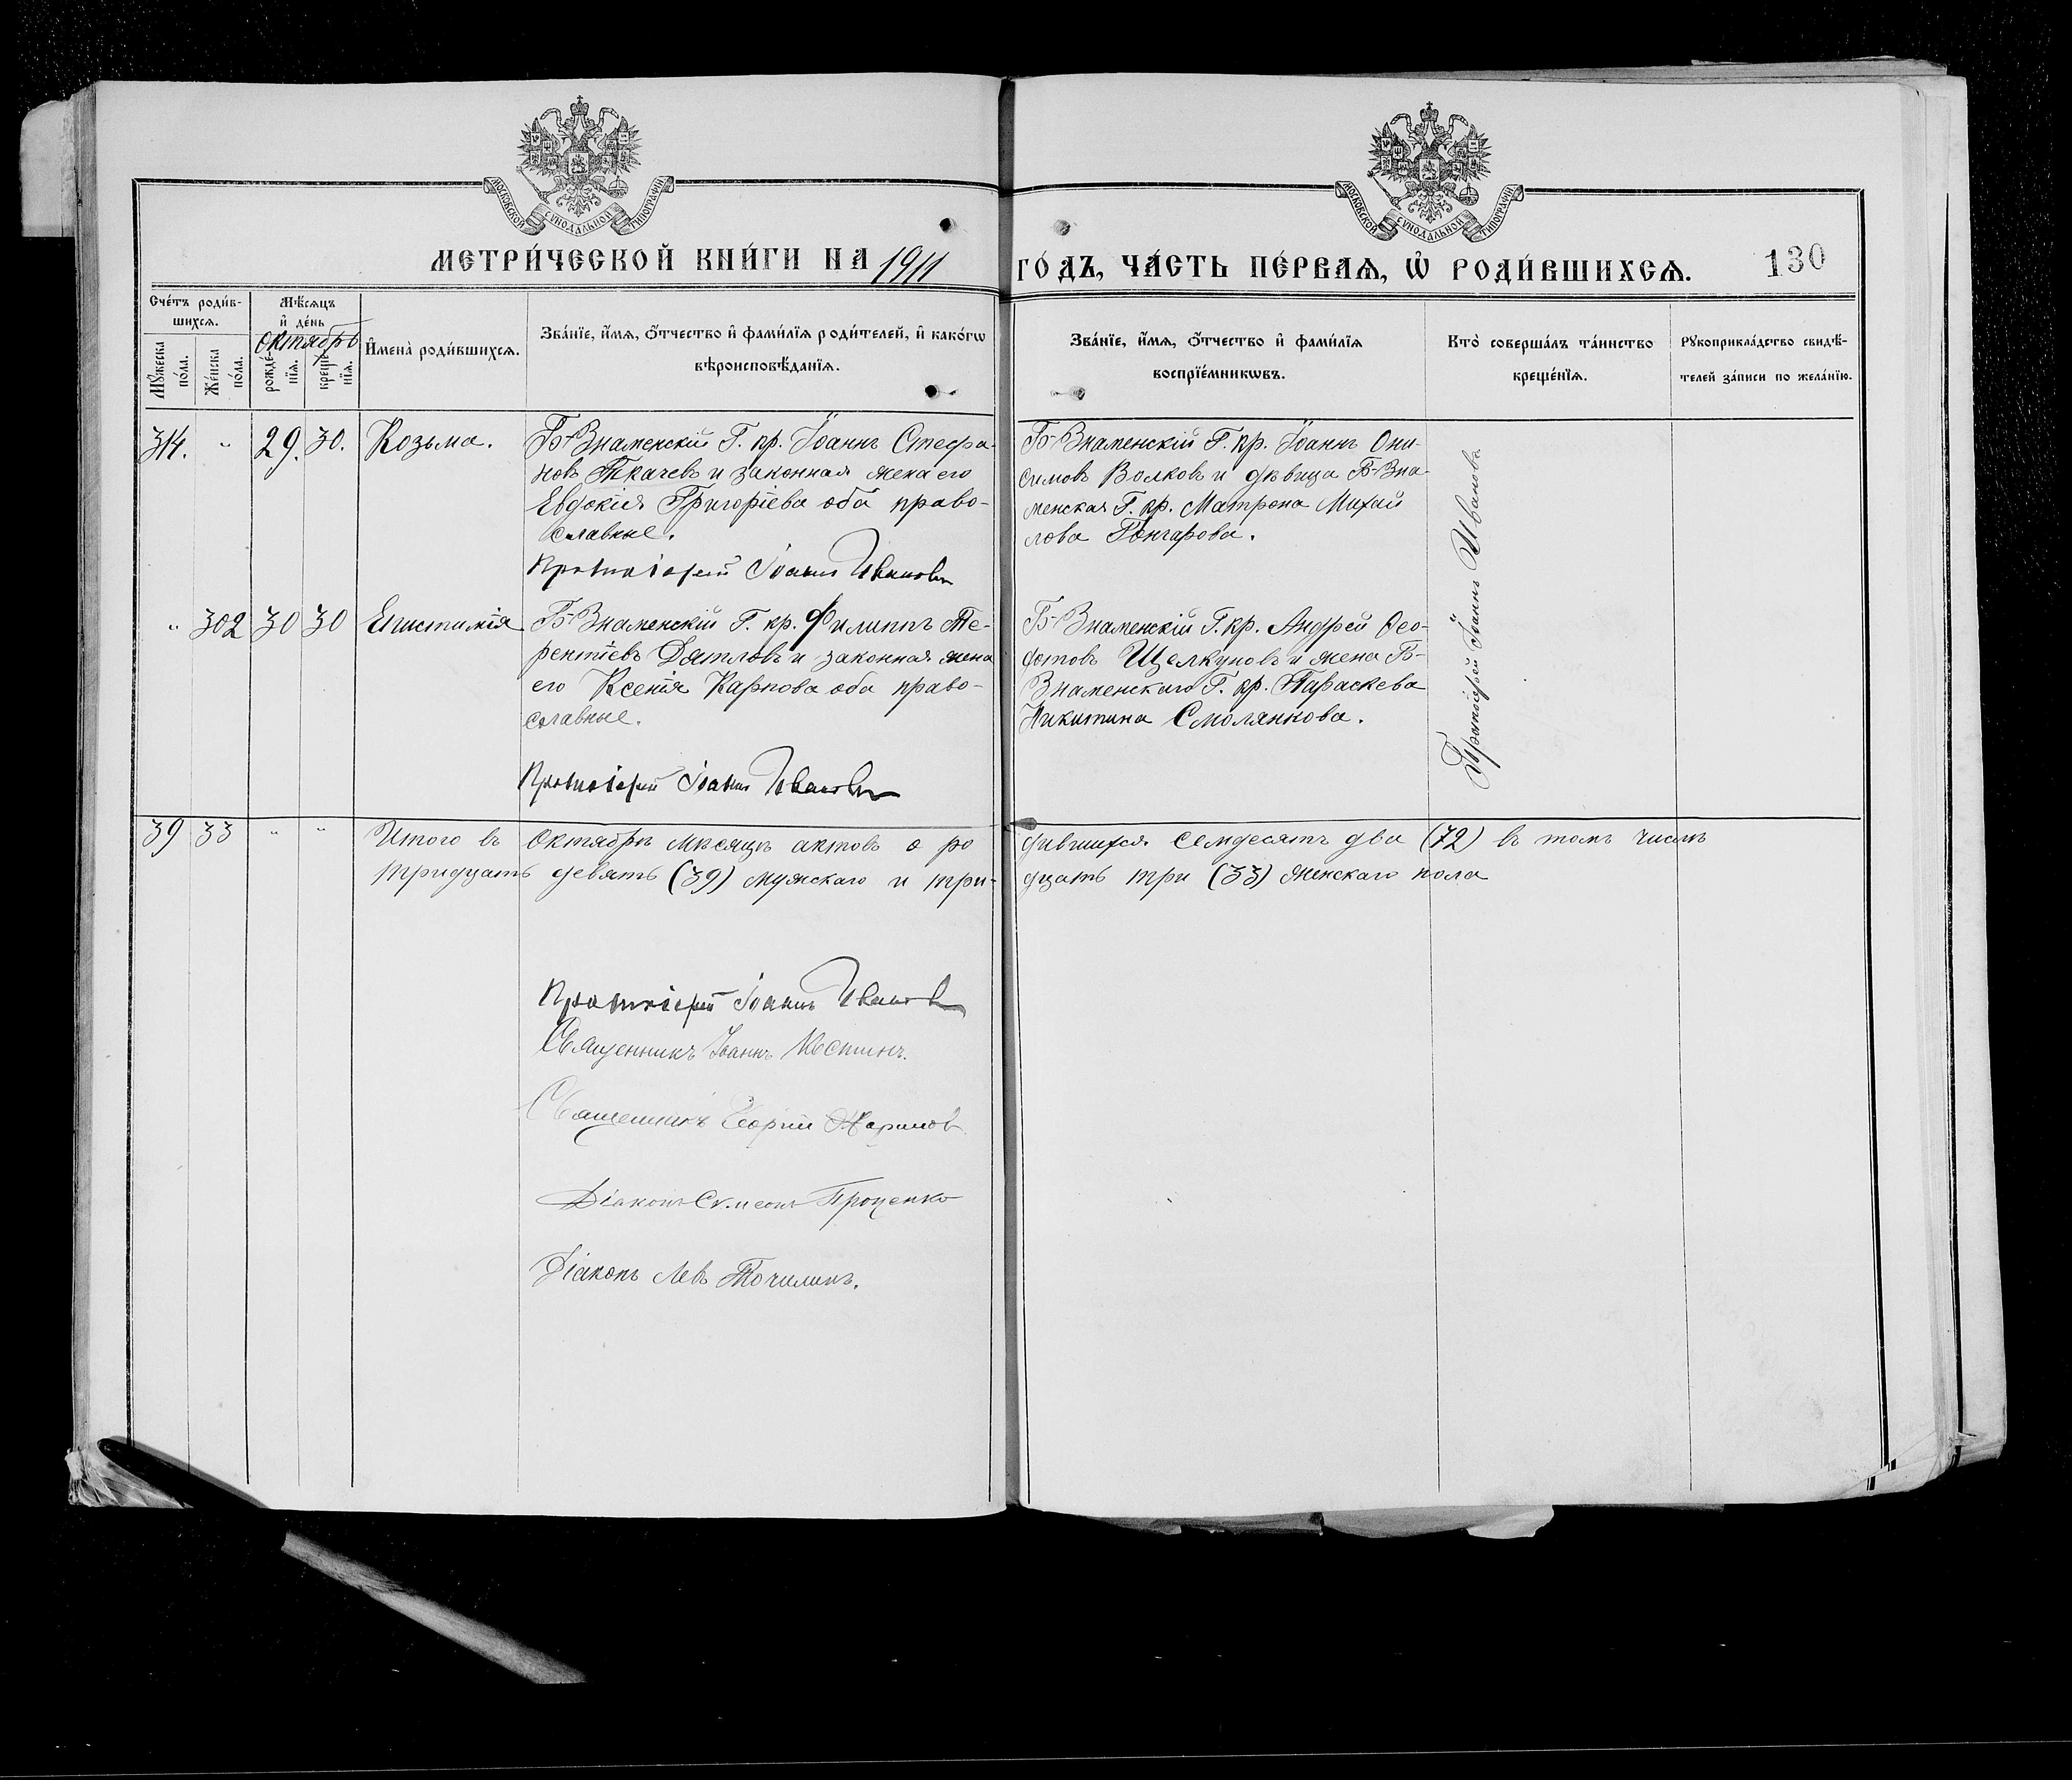 МОСКОВСКОЙ СУНОДАЛЬНОЙ ТИПОГРАФІИ
МОСКОВСКОЙ СУНОДАЛЬНОЙ ТИПОГРАФІИ
МЕТРИ́ЧЕСКОЙ КНИ́ГИ НА 1911 ГО́ДЪ, ЧА́СТЬ ПЕ́РВАѦ, Ѽ РОДИ́ВШИХСѦ.
130
Сче́тъ роди́в-
шихсѧ.
Мꙋ́жеска по́ла.
Же́нска по́ла.
Мѣ́сѧцъ
и҆ де́нь
Октябрь
рожде́-
нїѧ.
креще́-
нїѧ.
И҆мена̀ роди́вшихсѧ.
Зва́нїе, и҆́мѧ, ѻ҆́тчество и҆ фами́лїѧ роди́телей, и҆ како́гѡ
вѣроисповѣ́данїѧ.
Зва́нїе, и҆́мѧ, ѻ҆́тчество и҆ фами́лїѧ
воспрїе́мникѡвъ.
Кто̀ соверша́лъ та́инство
креще́нїѧ.
Рꙋкоприкла́дство свидѣ́-
телей за́писи по жела́нїю.
314. " 29. 30. Козьма.
Б-Знаменскій Г. кр. Іоаннъ Стефа-
новъ Ткачевъ и законная жена его
Евдокія Григоріева оба право-
славные.
Протоіерей Іоаннъ Ивановъ
Б-Знаменскій Г. кр. Іоаннъ Они-
симовъ Волковъ и дѣвица Б-Зна-
менская Г. кр. Матрона Михай
лова Гончарова.
Протоіерей Іоаннъ Ивановъ
" 302 30 30 Епистимія
Б-Знаменскій Г. кр. Филиппъ Те-
рентіевъ Дятловъ и законная жена
его Ксенія Карпова оба право-
славные.
Протоіерей Іоаннъ Ивановъ
Б-Знаменскій Г. кр. Андрей Ѳео-
дотовъ Щелкуновъ и жена Б-
Знаменскаго Г. кр. Параскева
Никитина Смолянкова.
39 33 " " Итого въ Октябрѣ мѣсяцѣ актовъ о ро дившихся семдесятъ два (72) въ томъ числѣ
тридцать девять (39) мужскаго и три- дцать три (33) женскаго пола
Протоіерей Іоаннъ Ивановъ
Священникъ Іоаннъ
Священникъ Георгій
Діаконъ Сѵмеонъ Проценко
Діаконъ Левъ Точилинъ.